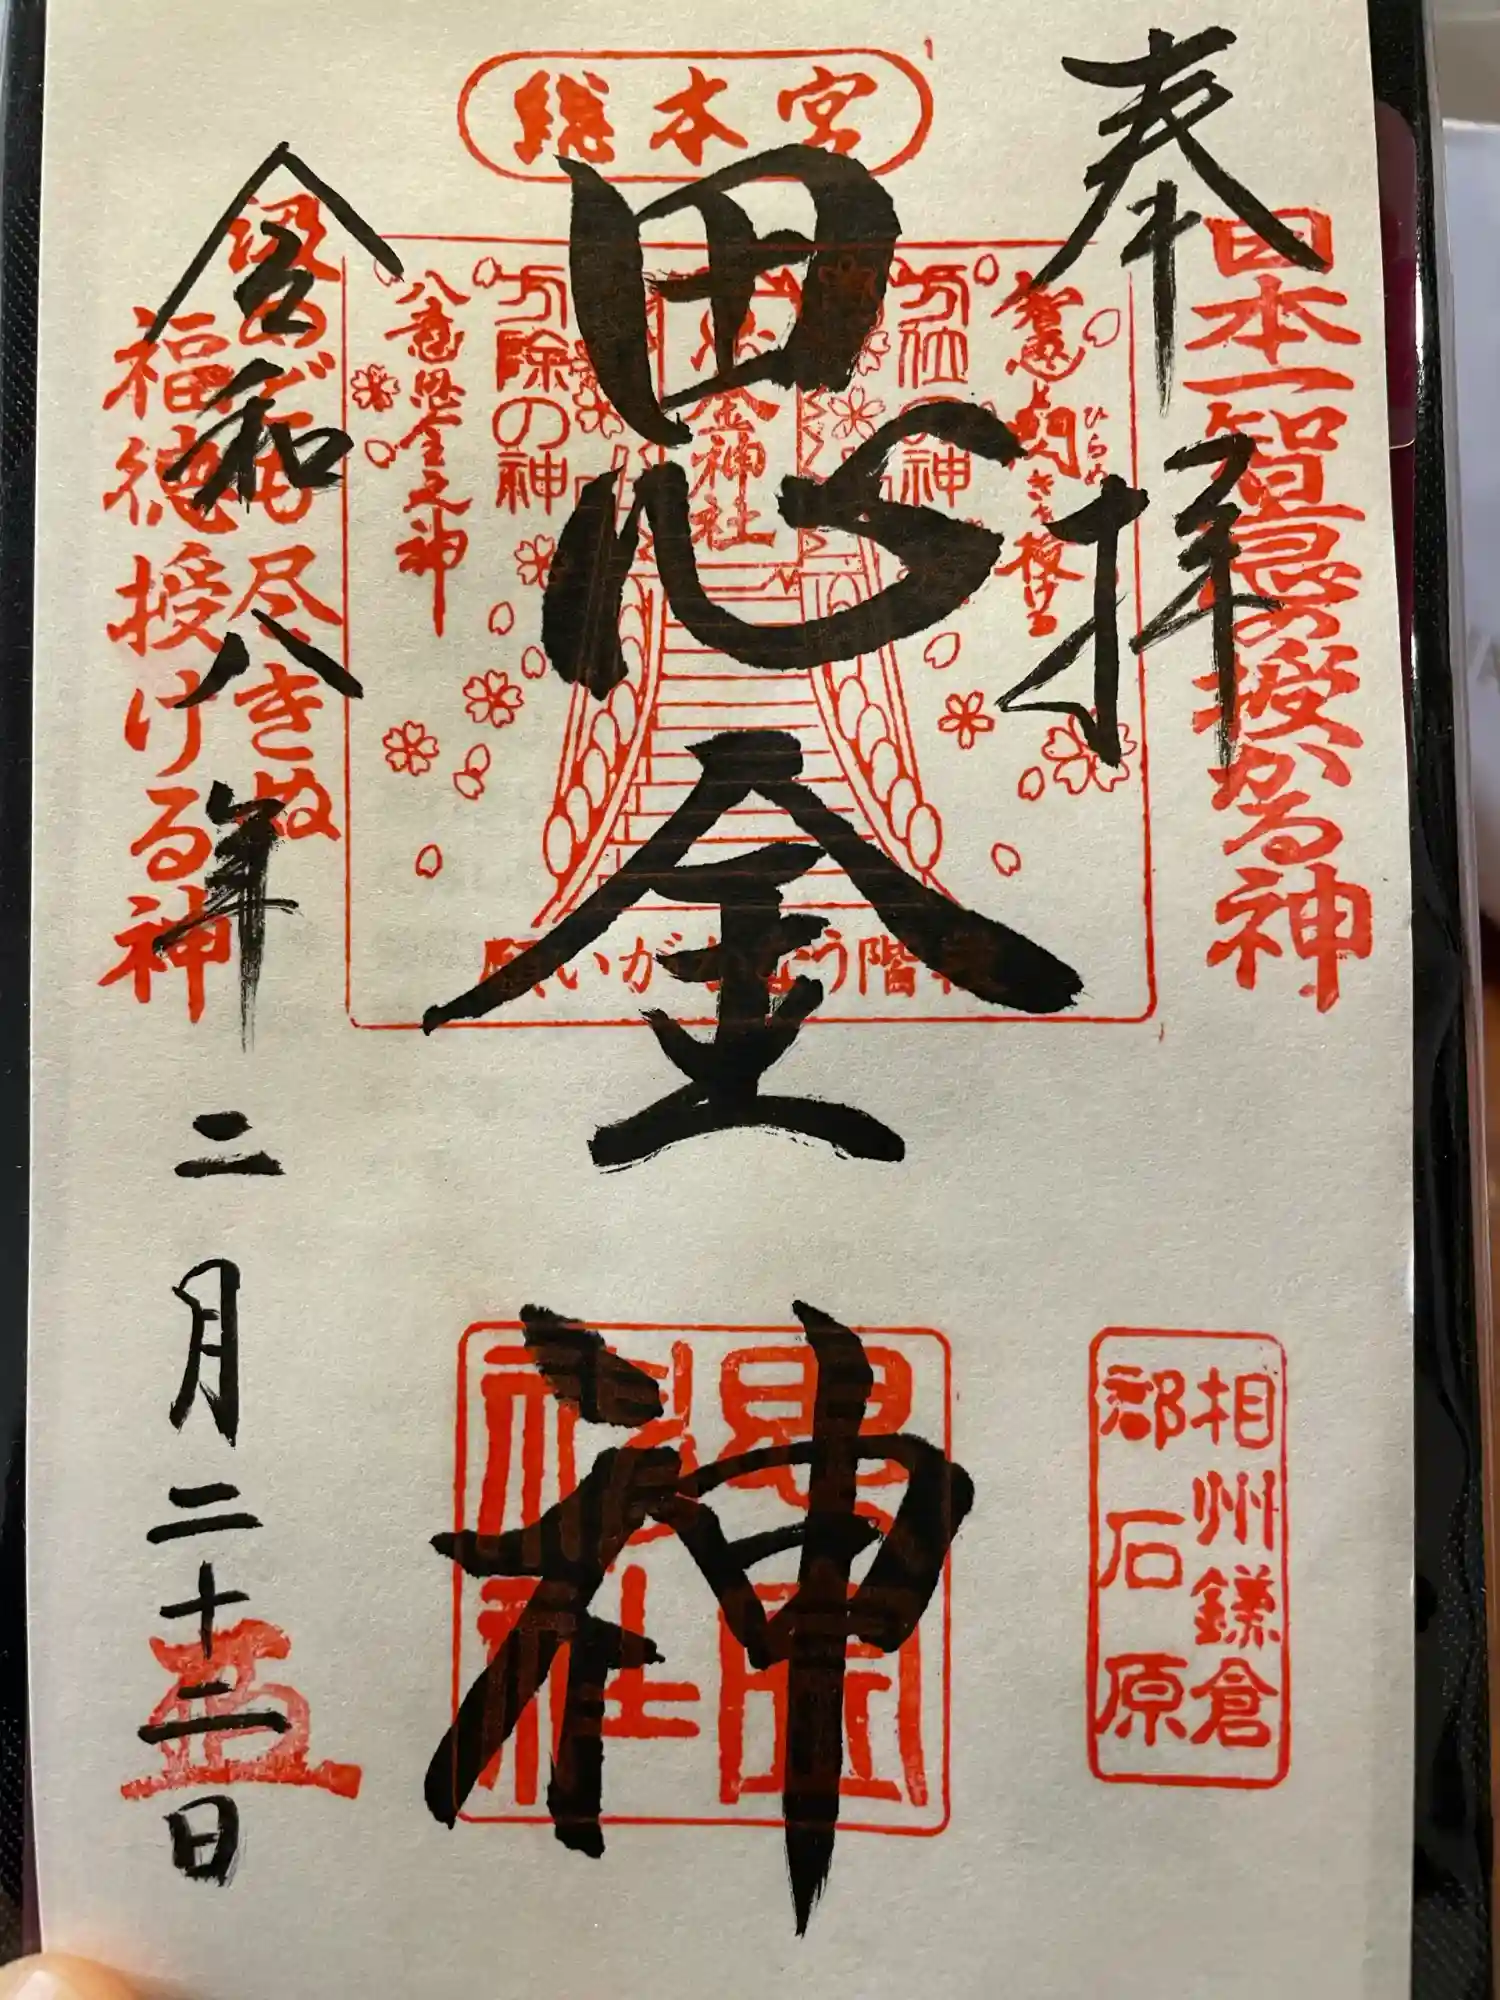 奉拝
日本一智恵の授かる神
総本宮
智恵と閃きを授ける
ひらめ
方位の神
思金神社
方除の神
八意思金之神
願いがかなう階段
思金神
相州鎌倉
郡石原
思金
神社
汲めども尽きぬ
福徳授ける神
令和八年二月二十二日